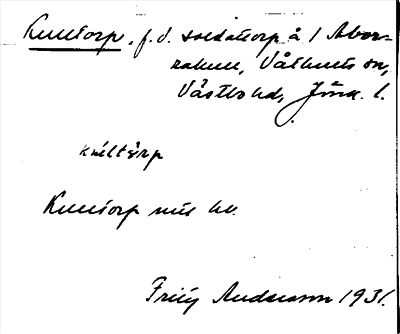 Kulltorp, f. d. soldattorp å 1 Abor-
rakull, Våthults sn,
Västbo hd, Jönk. l.
kúlltòrp
Kulltorp nu hv.
Frity Andersson 1931.